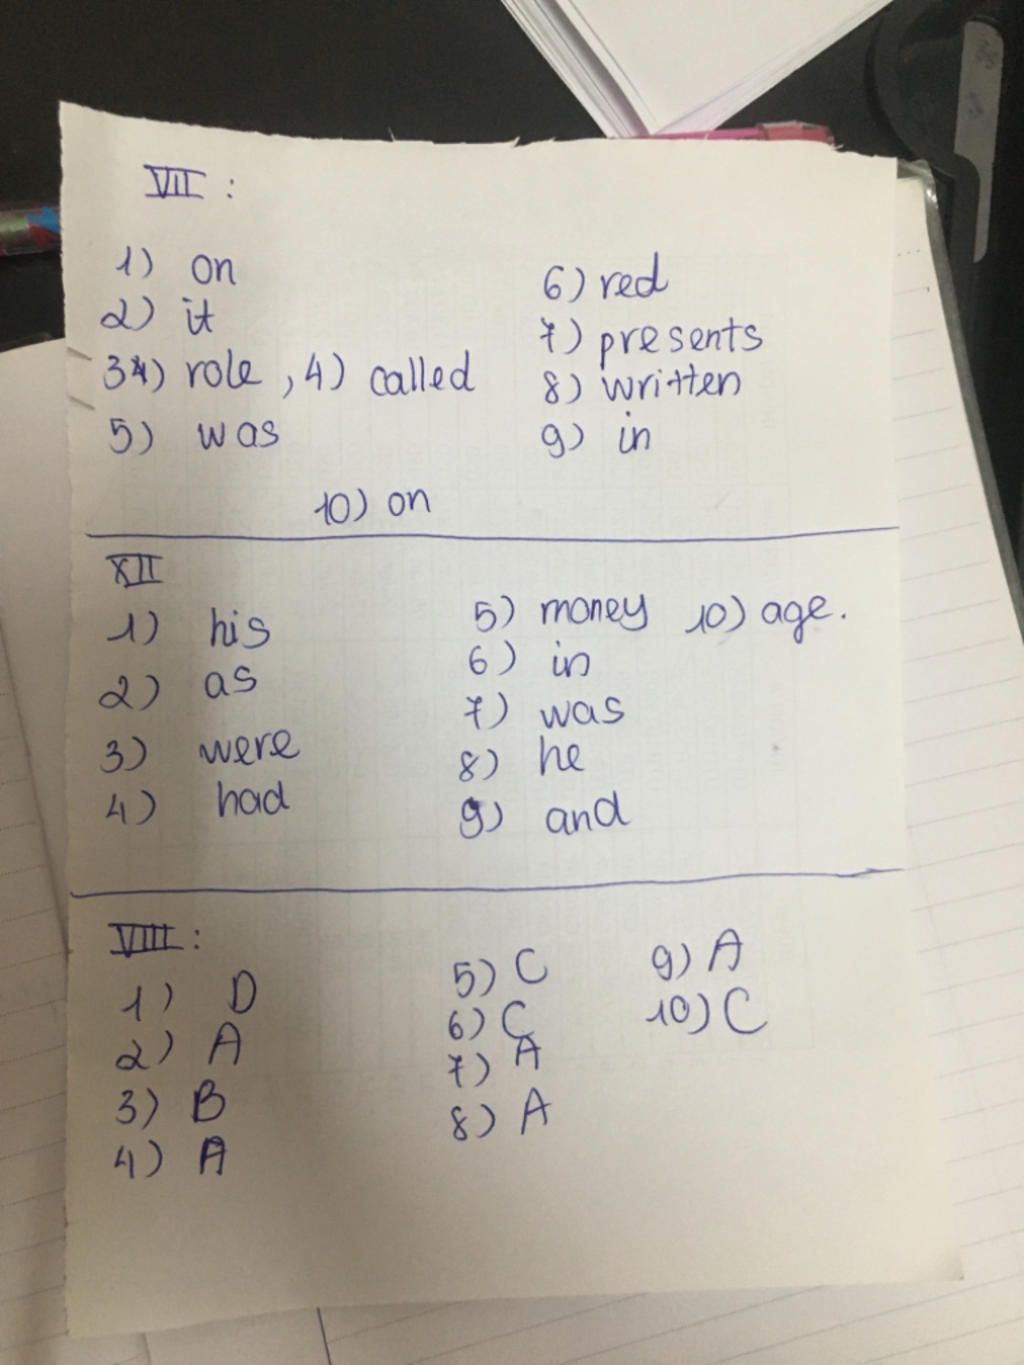 VII :
1) on
2) it
3) role , 4) called
5) was
6) red
7) presents
8) written
9) in
10) on
XII
1) his
2) as
3) were
4) had
5) money 10) age.
6) in
7) was
8) he
9) and
VIII :
1) D
2) A
3) B
4) A
5) C
6) C
7) A
8) A
9) A
10) C